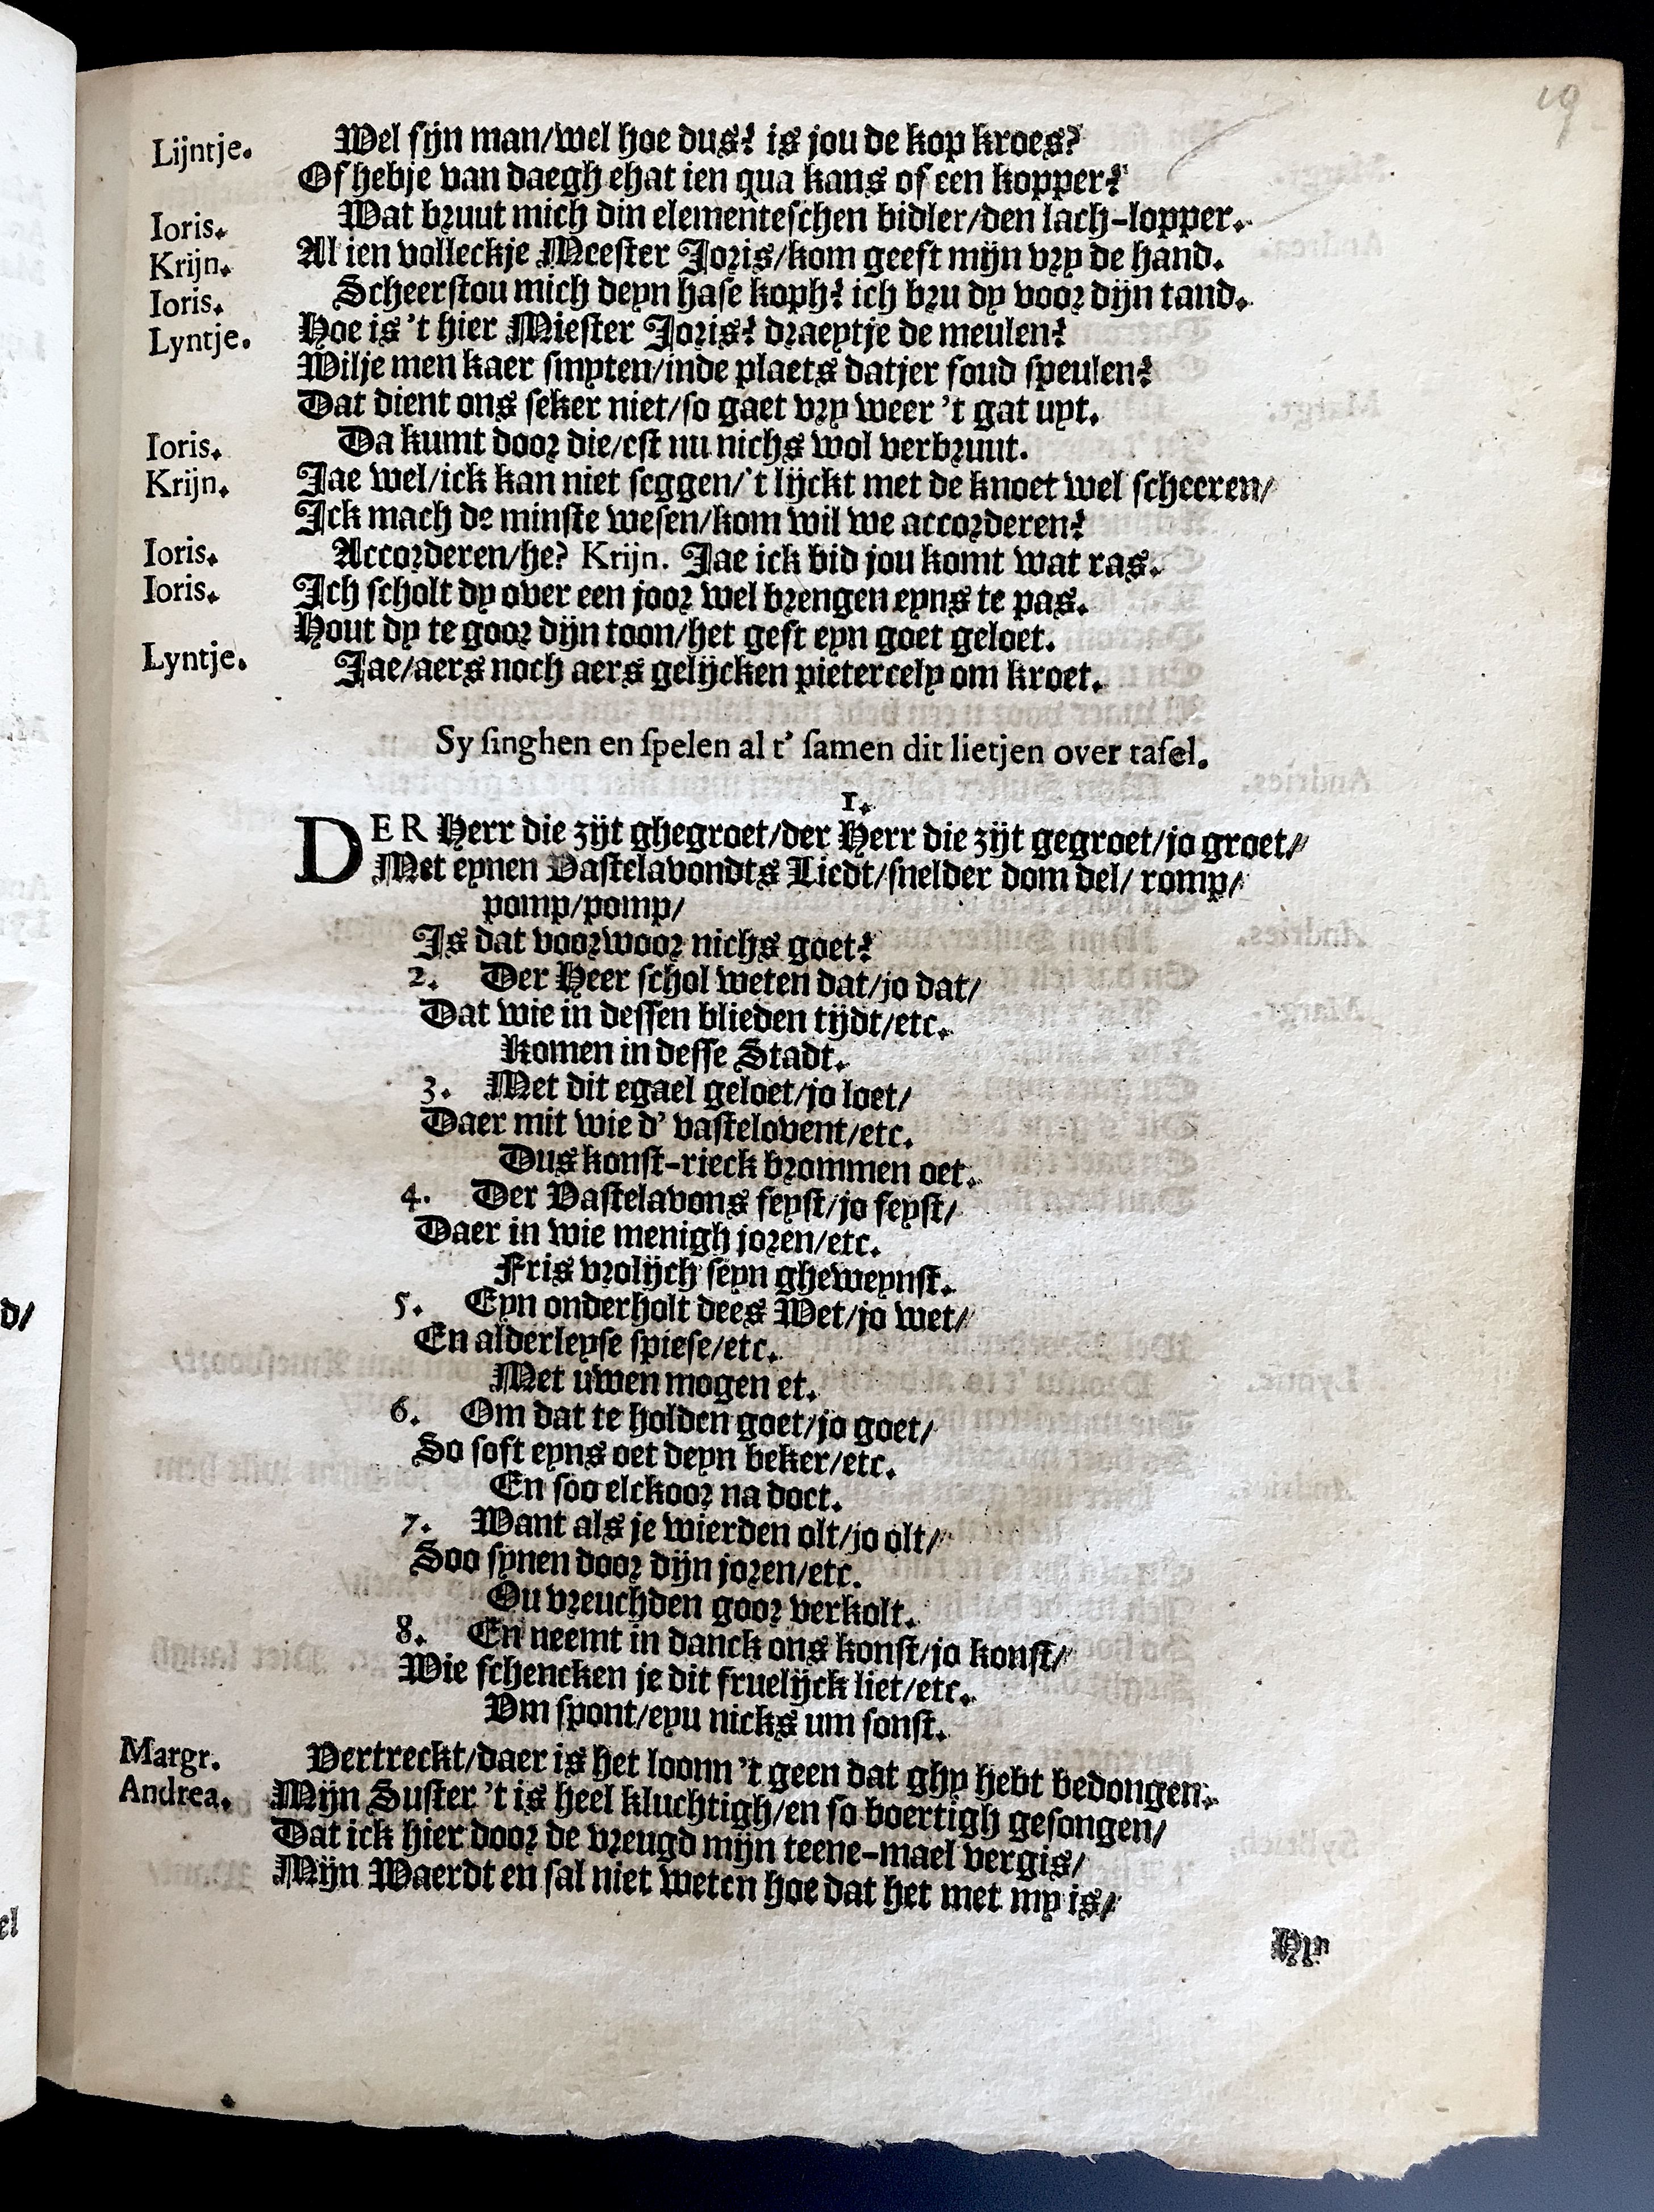 19
Lijntje. Wel sijn man/wel hoe dus? is jou de kop kroes?
Of hebje van daegh ehat ien qua kans of een kopper?
Ioris. Wat bruut mich din elementeschen bidler/den lach-lopper.
Krijn. Al ien volleckje Meester Joris/kom geeft mijn vry de hand.
Ioris. Scheerstou mich deyn hase koph? ich bru dy voor dijn tand.
Lyntje. Hoe is 't hier Miester Joris? draeytje de meulen?
Wilje men kaer smyten/inde plaets datjer soud speulen?
Dat dient ons seker niet/so gaet vry weer 't gat uyt.
Ioris. Da kumt door die/est nu nichs wol verbruut.
Krijn. Jae wel/ick kan niet seggen/'t lijckt met de knoet wel scheeren/
Ick mach de minste wesen/kom wil we accorderen?
Ioris. Accorderen/he? Krijn. Jae ick bid jou komt wat ras.
Ioris. Ich scholt dy over een joor wel brengen eyns te pas.
Hout dy te goor dijn toon/het geft eyn goet geloet.
Lyntje. Jae/aers noch aers gelijcken pietercely om kroet.
Sy singhen en spelen al t' samen dit lietjen over tafel.
1.
DER Herr die zijt ghegroet/der Herr die zijt gegroet/jo groet/
Met eynen Vastelavondts Liedt/snelder dom del/ romp/
pomp/pomp/
Is dat voorwoor nichs goet?
2. Der Heer schol weten dat/jo dat/
Dat wie in dessen blieden tijdt/etc.
Komen in desse Stadt.
3. Met dit egael geloet/jo loet/
Daer mit wie d' vastelovent/etc.
Dus konst-rieck brommen oet.
4. Der Vastelavons feyst/jo feyst/
Daer in wie menigh joren/etc.
Fris vrolijch seyn gheweynst.
5. Eyn onderholt dees Wet/jo wet/
En alderleyse spiese/etc.
Met uwen mogen et.
6. Om dat te holden goet/jo goet/
So soft eyns oet deyn beker/etc.
En soo elckoor na doet.
7. Want als je wierden olt/jo olt/
Soo synen door dijn joren/etc.
Ou vreuchden goor verkolt.
8. En neemt in danck ons konst/jo konst/
Wie schencken je dit fruelijck liet/etc.
Vm spont/eyu nicks um sonst.
Margr. Vertreckt/daer is het loonn 't geen dat ghy hebt bedongen.
Andrea. Mijn Suster 't is heel kluchtigh/en so boertigh gesongen/
Dat ick hier door de vreugd mijn teene-mael vergis/
Mijn Waerdt en sal niet weten hoe dat het met my is/